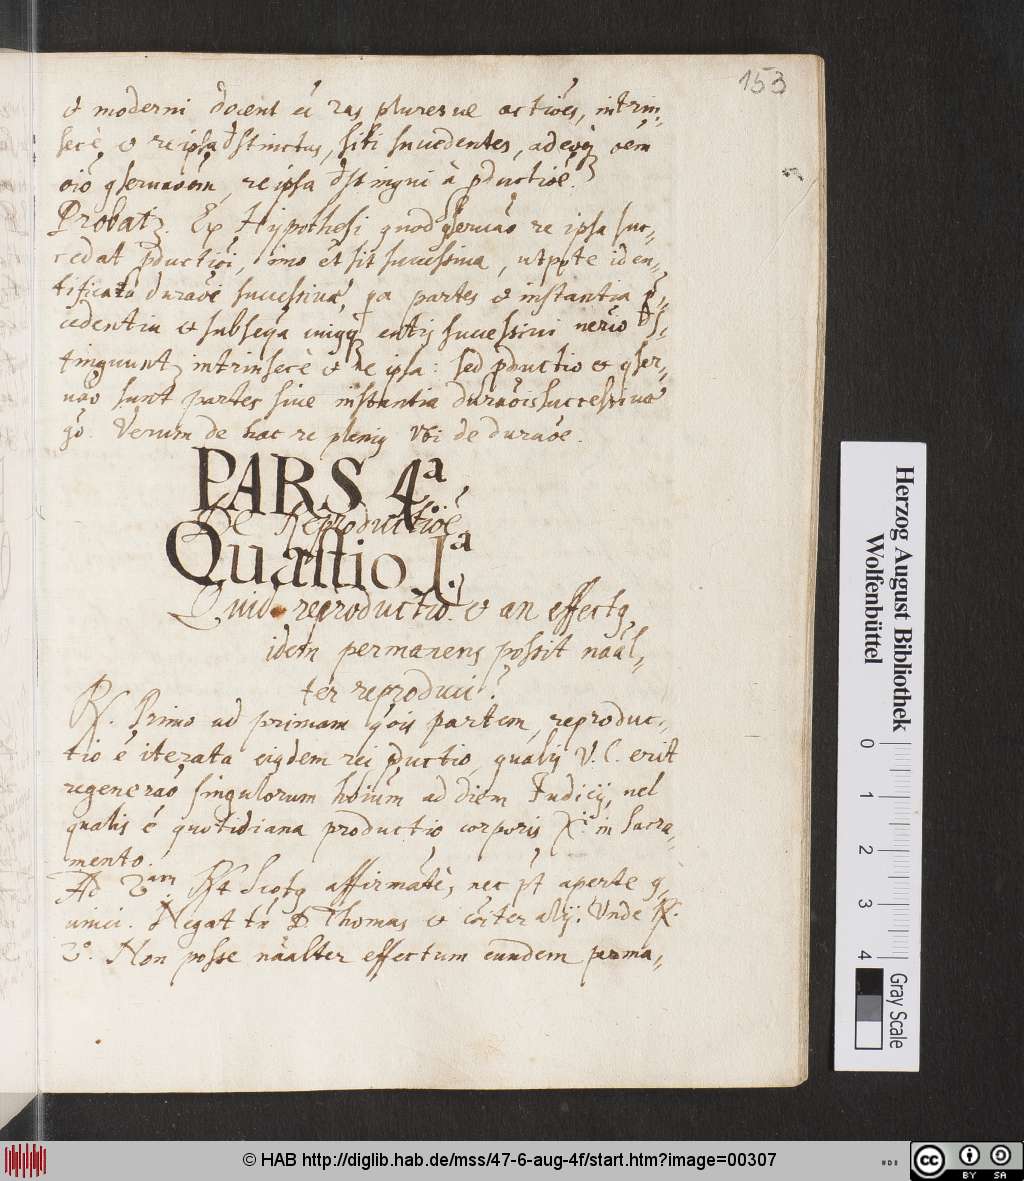 153
& moderni docent eē ras pluresve actiões, intrin,,
secè & reipsa dstinctas, sibi succedentes, adeoq oēm
oiō qseruaōem, reipsa dstingui à pductiōe.
Probat. Ex Hypothesi quod qseruaō re ipsa suc,,
cedat pductiōi, imo et sit successiua, utpote iden,,
tificata duraōi successiuae, qa partes & instantia p,,
cedentia & subseqa entis successiui nerio ds,,
tinguunt intrinsecè & re ipsa: sed pductio & qser,,
uaō sunt partes siue instantia duraōis successiuae
go. Verum de hac re plenig ubi de duraōe.
PARS 4.a
De Reproductiōe
Quæstio I.a
Quid reproductio & an effectg
idem permanens possit naāl,,
ter reproduci?
R. Primo ad primam qōis partem, reproduc,,
tio ē iterata eigdem rei pductio, qualis V.C. erit
regeneraō singulorum hoīum ad diem Judicij, vel
qualis ē quotidiana productio corporis Xi in Sacra,,
mento.
Ad 2am Rt Scotg affirmatè, nec pt aperte q,,
uinci. Negat tn D. Thomas & cōiter alij. Unde R.
2o. Non posse naālter effectum eundem perma,,
Herzog August Bibliothek
Wolfenbüttel
0 1 2 3 4
Gray Scale
© HAB http://diglib.hab.de/mss/47-6-aug-4f/start.htm?image=00307
cc BY SA